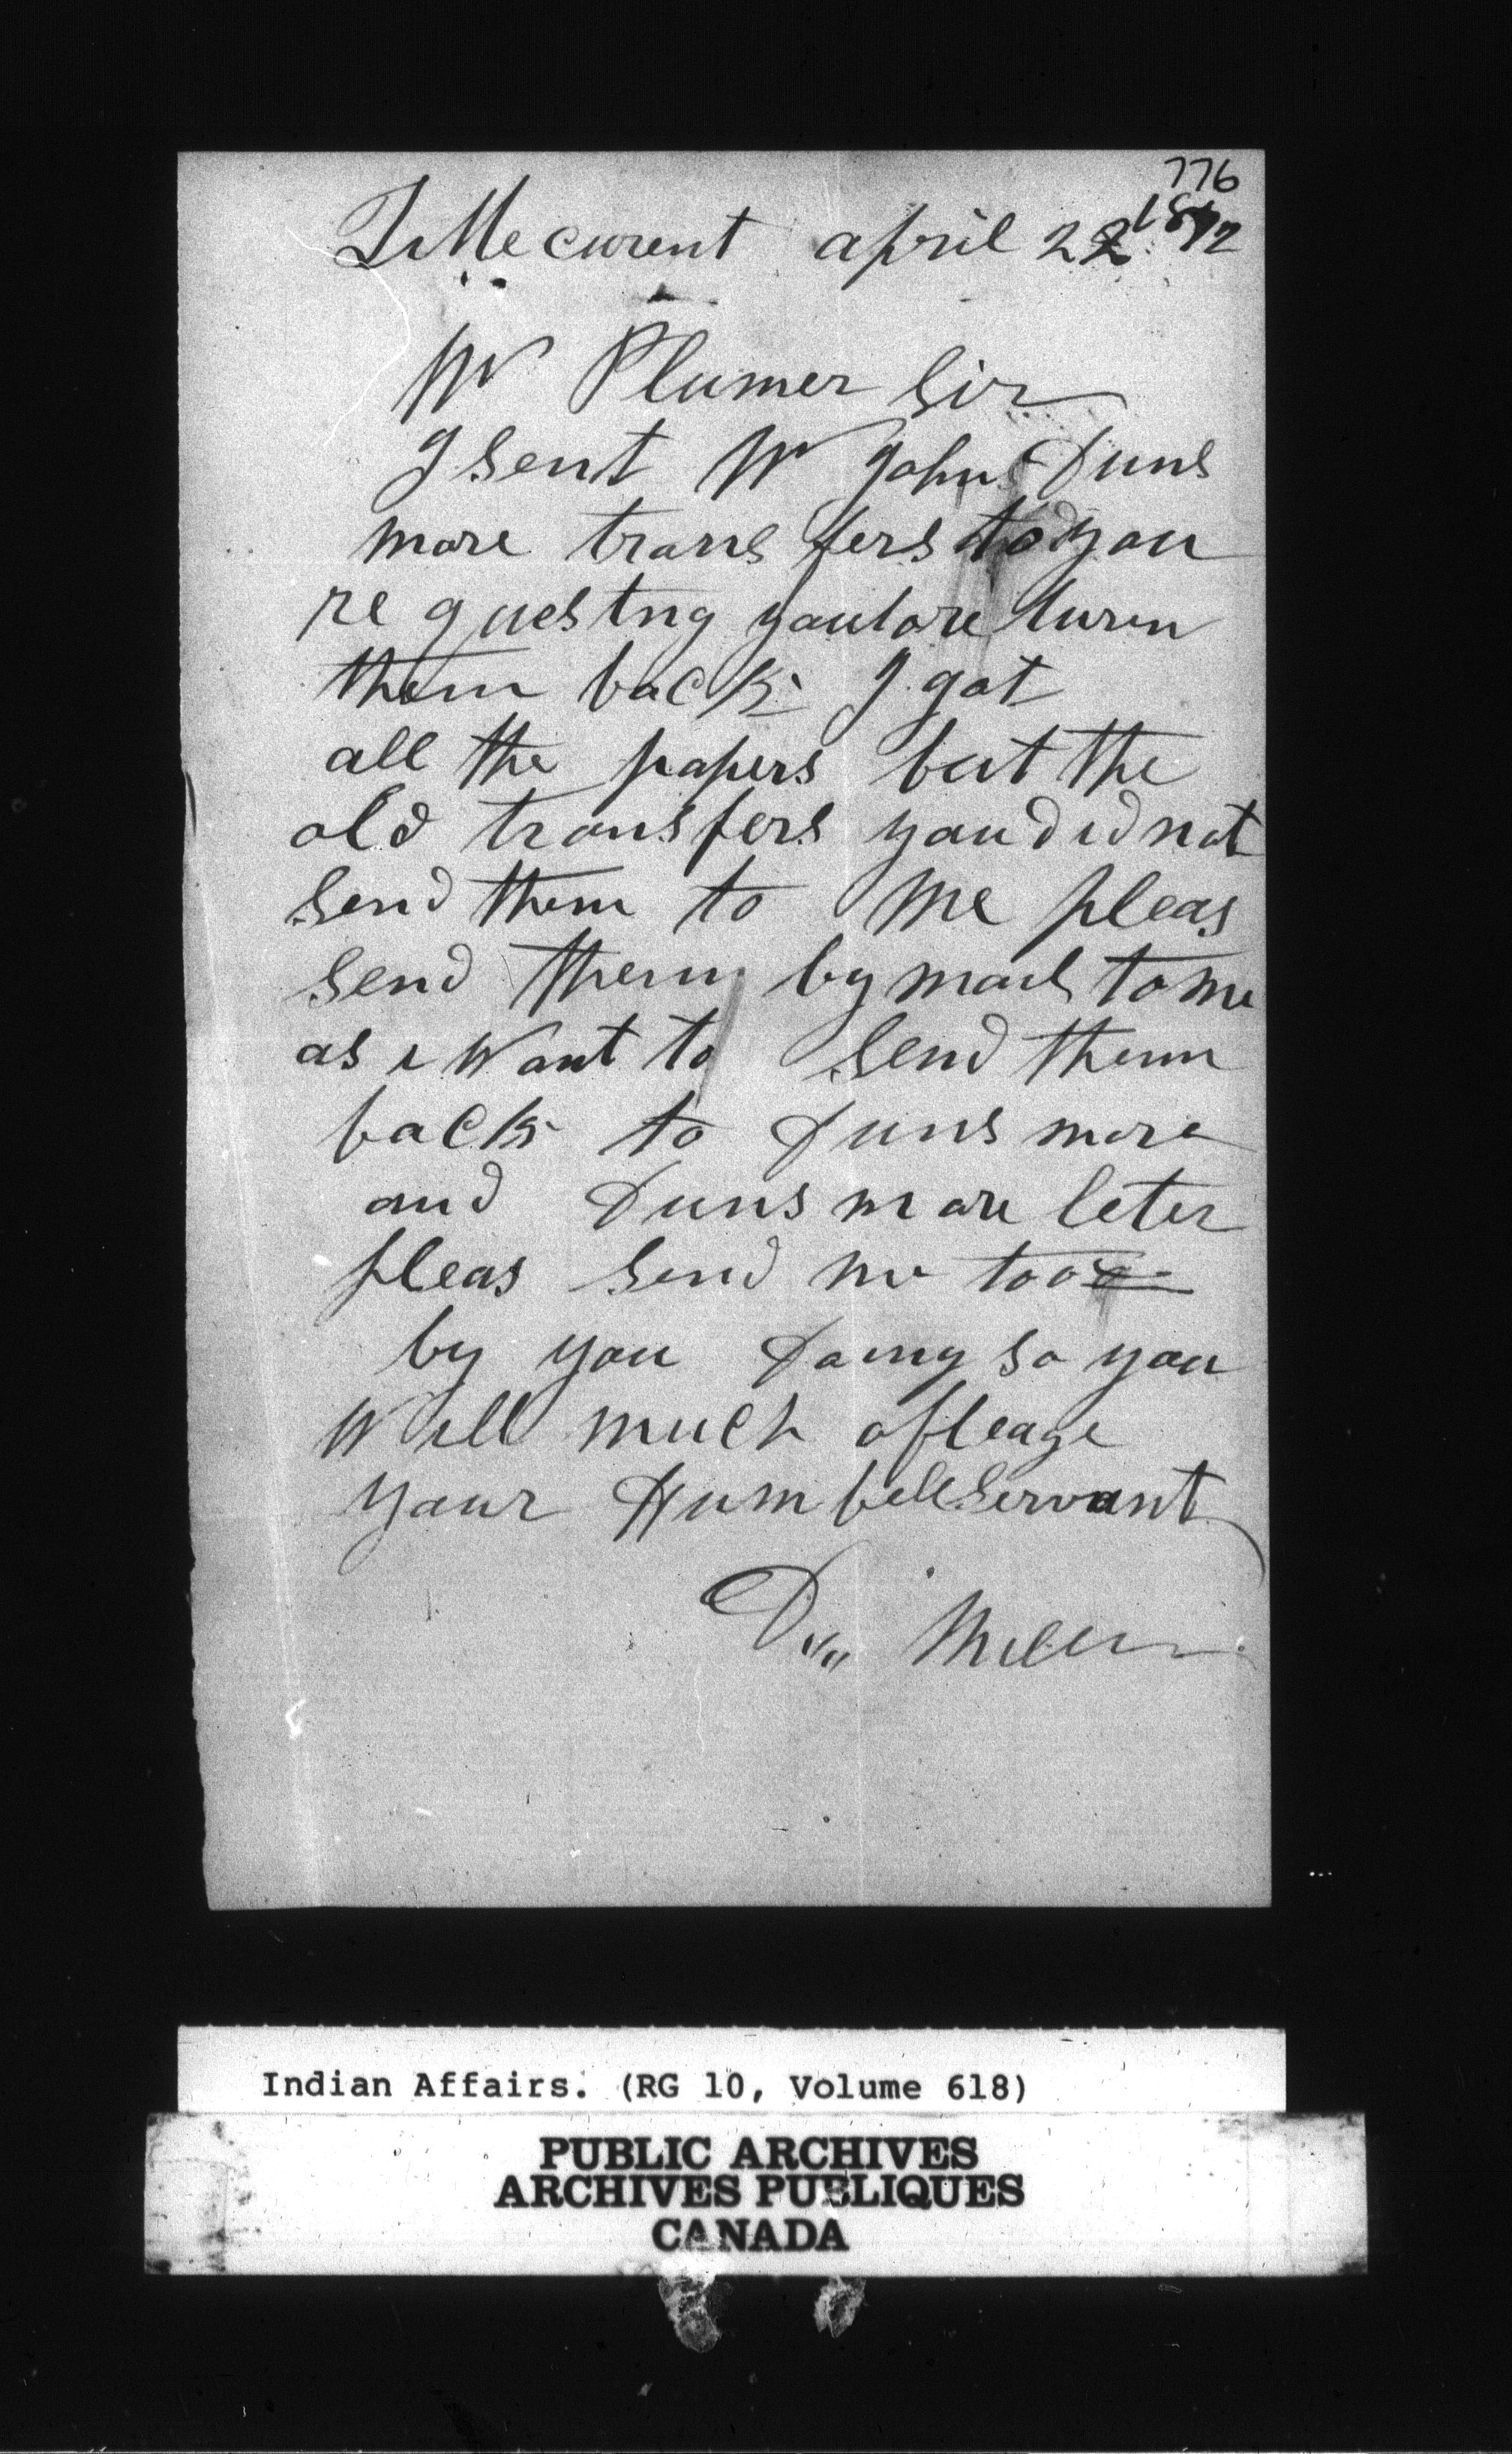 776
Little curent april 22d 1872
Mr Plumer Sir
I sent Mr John Duns
more trans fers to you
re questng you to re turen
them back I got
all the papers but the
old transfers you did not
send them to me pleas
send them by mail to me
as i want to send them
back to Duns more
and Duns more leter
pleas send me too
by you Doing so you
Will much obleage
your Humbell Servant
Dn Miller
Indian Affairs. (RG 10, Volume 618)
PUBLIC ARCHIVES
ARCHIVES PUBLIQUES
CANADA